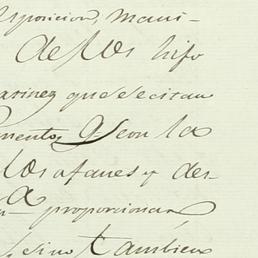 sposicion, mani-
de los hijo
que se citan
mento, q.e con la
los afanes y des-
proporcionar
, sino tambien